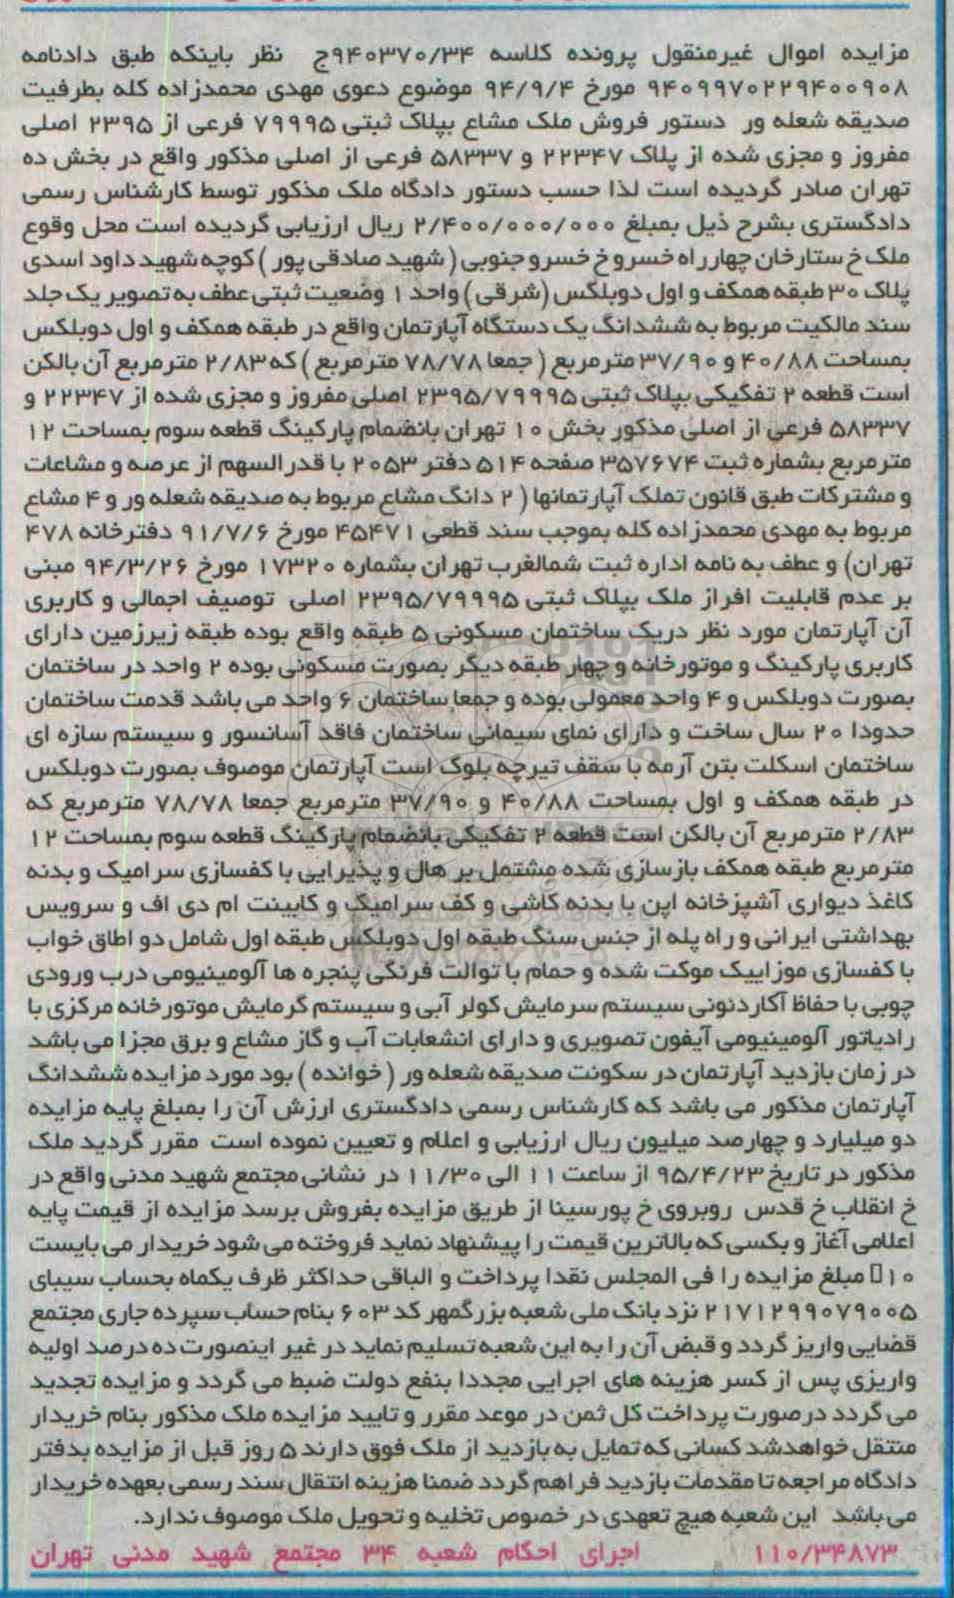 مزایده اموال غیرمنقول پرونده کلاسه ۹۴۰۳۷۰/۳۴ج نظر باینکه طبق دادنامه
۹۴۰۹۹۷۰۲۲۹۴۰۰۹۰۸ مورخ ۹۴/۹/۴ موضوع دعوی مهدی محمدزاده کله بطرفیت
صدیقه شعله ور دستور فروش ملک مشاع بپلاک ثبتی ۷۹۹۹۵ فرعی از ۲۳۹۵ اصلی
مفروز و مجزی شده از پلاک ۲۲۳۴۷ و ۵۸۳۳۷ فرعی از اصلی مذکور واقع در بخش ده
تهران صادر گردیده است لذا حسب دستور دادگاه ملک مذکور توسط کارشناس رسمی
دادگستری بشرح ذیل بمبلغ ۲/۴۰۰/۰۰۰/۰۰۰ ریال ارزیابی گردیده است محل وقوع
ملک خ ستارخان چهارراه خسرو خ خسرو جنوبی ( شهید صادقی پور ) کوچه شهید داود اسدی
پلاک ۳۰ طبقه همکف و اول دوبلکس (شرقی) واحد ۱ وضعیت ثبتی عطف به تصویر یک جلد
سند مالکیت مربوط به ششدانگ یک دستگاه آپارتمان واقع در طبقه همکف و اول دوبلکس
بمساحت ۴۰/۸۸ و ۳۷/۹۰ مترمربع ( جمعا ۷۸/۷۸ مترمربع ) که ۲/۸۳ مترمربع آن بالکن
است قطعه ۲ تفکیکی بپلاک ثبتی ۲۳۹۵/۷۹۹۹۵ اصلی مفروز و مجزی شده از ۲۲۳۴۷ و
۵۸۳۳۷ فرعی از اصلی مذکور بخش ۱۰ تهران بانضمام پارکینگ قطعه سوم بمساحت ۱۲
مترمربع بشماره ثبت ۳۵۷۶۷۴ صفحه ۵۱۴ دفتر ۲۰۵۳ با قدرالسهم از عرصه و مشاعات
و مشترکات طبق قانون تملک آپارتمانها ( ۲ دانگ مشاع مربوط به صدیقه شعله ور و ۴ مشاع
مربوط به مهدی محمدزاده کله بموجب سند قطعی ۴۵۴۷۱ مورخ ۹۱/۷/۶ دفترخانه ۴۷۸
تهران) و عطف به نامه اداره ثبت شمالغرب تهران بشماره ۱۷۳۲۰ مورخ ۹۴/۳/۲۶ مبنی
بر عدم قابلیت افراز ملک بپلاک ثبتی ۲۳۹۵/۷۹۹۹۵ اصلی توصیف اجمالی و کاربری
آن آپارتمان مورد نظر دریک ساختمان مسکونی ۵ طبقه واقع بوده طبقه زیرزمین دارای
کاربری پارکینگ و موتورخانه و چهار طبقه دیگر بصورت مسکونی بوده ۲ واحد در ساختمان
بصورت دوبلکس و ۴ واحد معمولی بوده و جمعا ساختمان ۶ واحد می باشد قدمت ساختمان
حدودا ۲۰ سال ساخت و دارای نمای سیمانی ساختمان فاقد آسانسور و سیستم سازه ای
ساختمان اسکلت بتن آرمه با سقف تیرچه بلوک است آپارتمان موصوف بصورت دوبلکس
در طبقه همکف و اول بمساحت ۴۰/۸۸ و ۳۷/۹۰ مترمربع جمعا ۷۸/۷۸ مترمربع که
۲/۸۳ مترمربع آن بالکن است قطعه ۲ تفکیکی بانضمام پارکینگ قطعه سوم بمساحت ۱۲
مترمربع طبقه همکف بازسازی شده مشتمل بر هال و پذیرایی با کفسازی سرامیک و بدنه
کاغذ دیواری آشپزخانه اپن با بدنه کاشی و کف سرامیک و کابینت ام دی اف و سرویس
بهداشتی ایرانی و راه پله از جنس سنگ طبقه اول دوبلکس طبقه اول شامل دو اطاق خواب
با کفسازی موزاییک موکت شده و حمام با توالت فرنگی پنجره ها آلومینیومی درب ورودی
چوبی با حفاظ آکاردئونی سیستم سرمایش کولر آبی و سیستم گرمایش موتورخانه مرکزی با
رادیاتور آلومینیومی آیفون تصویری و دارای انشعابات آب و گاز مشاع و برق مجزا می باشد
در زمان بازدید آپارتمان در سکونت صدیقه شعله ور ( خوانده ) بود مورد مزایده ششدانگ
آپارتمان مذکور می باشد که کارشناس رسمی دادگستری ارزش آن را بمبلغ پایه مزایده
دو میلیارد و چهارصد میلیون ریال ارزیابی و اعلام و تعیین نموده است مقرر گردید ملک
مذکور در تاریخ ۹۵/۴/۲۳ از ساعت ۱۱ الی ۱۱/۳۰ در نشانی مجتمع شهید مدنی واقع در
خ انقلاب خ قدس روبروی خ پورسینا از طریق مزایده بفروش برسد مزایده از قیمت پایه
اعلامی آغاز و بکسی که بالاترین قیمت را پیشنهاد نماید فروخته می شود خریدار می بایست
۱۰ مبلغ مزایده را فی المجلس نقدا پرداخت و الباقی حداکثر ظرف یکماه بحساب سیبای
۲۱۷۱۲۹۹۰۷۹۰۰۵ نزد بانک ملی شعبه بزرگمهر کد ۶۰۳ بنام حساب سپرده جاری مجتمع
قضایی واریز گردد و قبض آن را به این شعبه تسلیم نماید در غیر اینصورت ده درصد اولیه
واریزی پس از کسر هزینه های اجرایی مجددا بنفع دولت ضبط می گردد و مزایده تجدید
می گردد درصورت پرداخت کل ثمن در موعد مقرر و تایید مزایده ملک مذکور بنام خریدار
منتقل خواهدشد کسانی که تمایل به بازدید از ملک فوق دارند ۵ روز قبل از مزایده بدفتر
دادگاه مراجعه تا مقدمات بازدید فراهم گردد ضمنا هزینه انتقال سند رسمی بعهده خریدار
می باشد این شعبه هیچ تعهدی در خصوص تخلیه و تحویل ملک موصوف ندارد.
۱۱۰/۳۴۸۷۳ اجرای احکام شعبه ۳۴ مجتمع شهید مدنی تهران